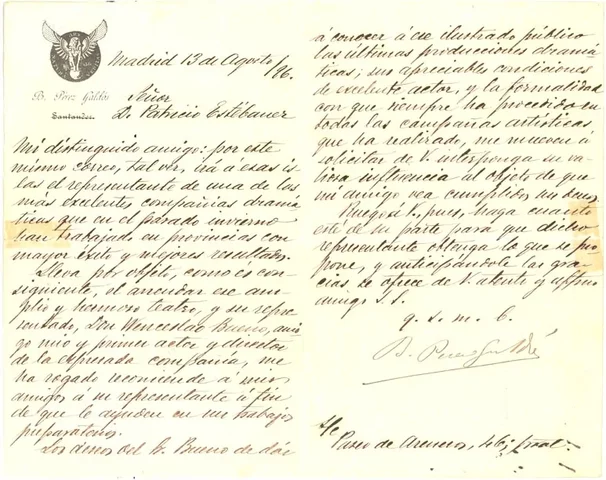 Madrid 13 de Agosto/96.
B. Pérez Galdós
Santander.
Señor
D. Patricio Estébanez
Mi distinguido amigo: por este
mismo correo, tal vez, irá á esas is
las el representante de una de las
más excelentes compañías dramá
ticas que en el pasado invierno
han trabajado en provincias con
mayor éxito y mejores resultados.
Lleva por objeto, como es con
siguiente, el arrendar ese am
plio y hermoso teatro, y su repre
sentado, Don Wenceslao Bueno, ami
go mio y primer actor y director
de la expresada compañía, me
ha rogado recomiende á mis
amigos á su representante á fin
de que le ayuden en sus trabajos
preparatorios.
Los deseos del Sr. Bueno de dár
á conocer á ese ilustrado público
las últimas producciones dramá
ticas; sus apreciables condiciones
de excelente actor, y la formalidad
con que siempre ha procedido en
todas las campañas artísticas
que ha realizado, me mueven á
solicitar de V. interponga su va
liosa influencia al objeto de que
mi amigo vea cumplidos sus deseos.
Ruego á V., pues, haga cuanto
esté de su parte para que dicho
representante obtenga lo que se pro
pone, y anticipándole las gra
cias se ofrece de V. atento y affmo
amigo S. S.
q. s. m. b.
B. Perez Galdós
S/c
Paseo de Areneros, 46; pral.